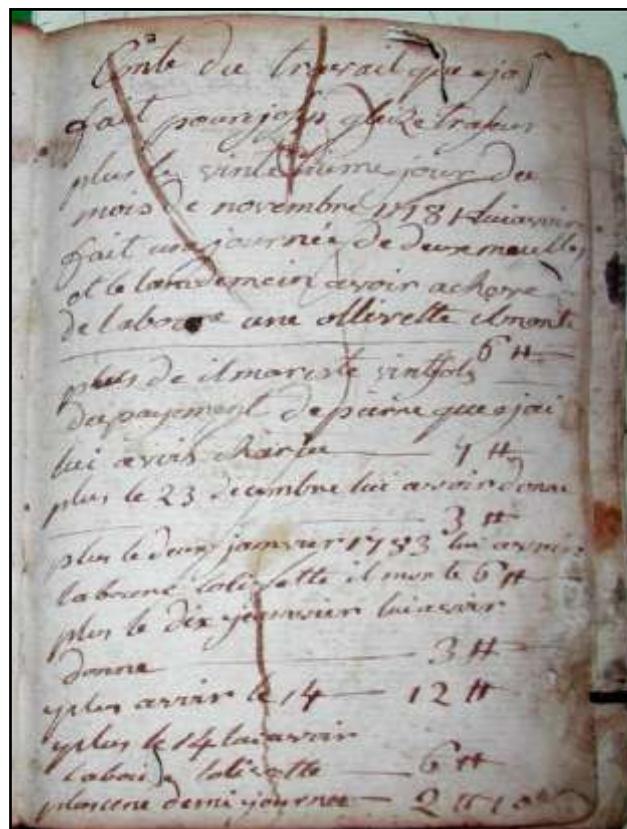 Conte du travail que jai
fait pour joseph gleize trafeur
plus le vinte jour du
mois de novembre 1781 lui avoir
fait une journée de deux meulles
et le landemein avoir acheve
de laboure une ollivette il monte
6 ₶
plus de il mar este vint sols
du payement de pierre que jai
lui avois charie 1 ₶
plus le 23 decembre lui avoir donne
3 ₶
plus le deux janvier 1783 lui avoir
laboure lolivette il monte 6 ₶
plus le dix jeanvier lui avoir
donne 3 ₶
yplus avoir le 14 12 ₶
yplus le 14 lui avoir
laboure lolivette 6 ₶
plus une demi journee 2 ₶ 10